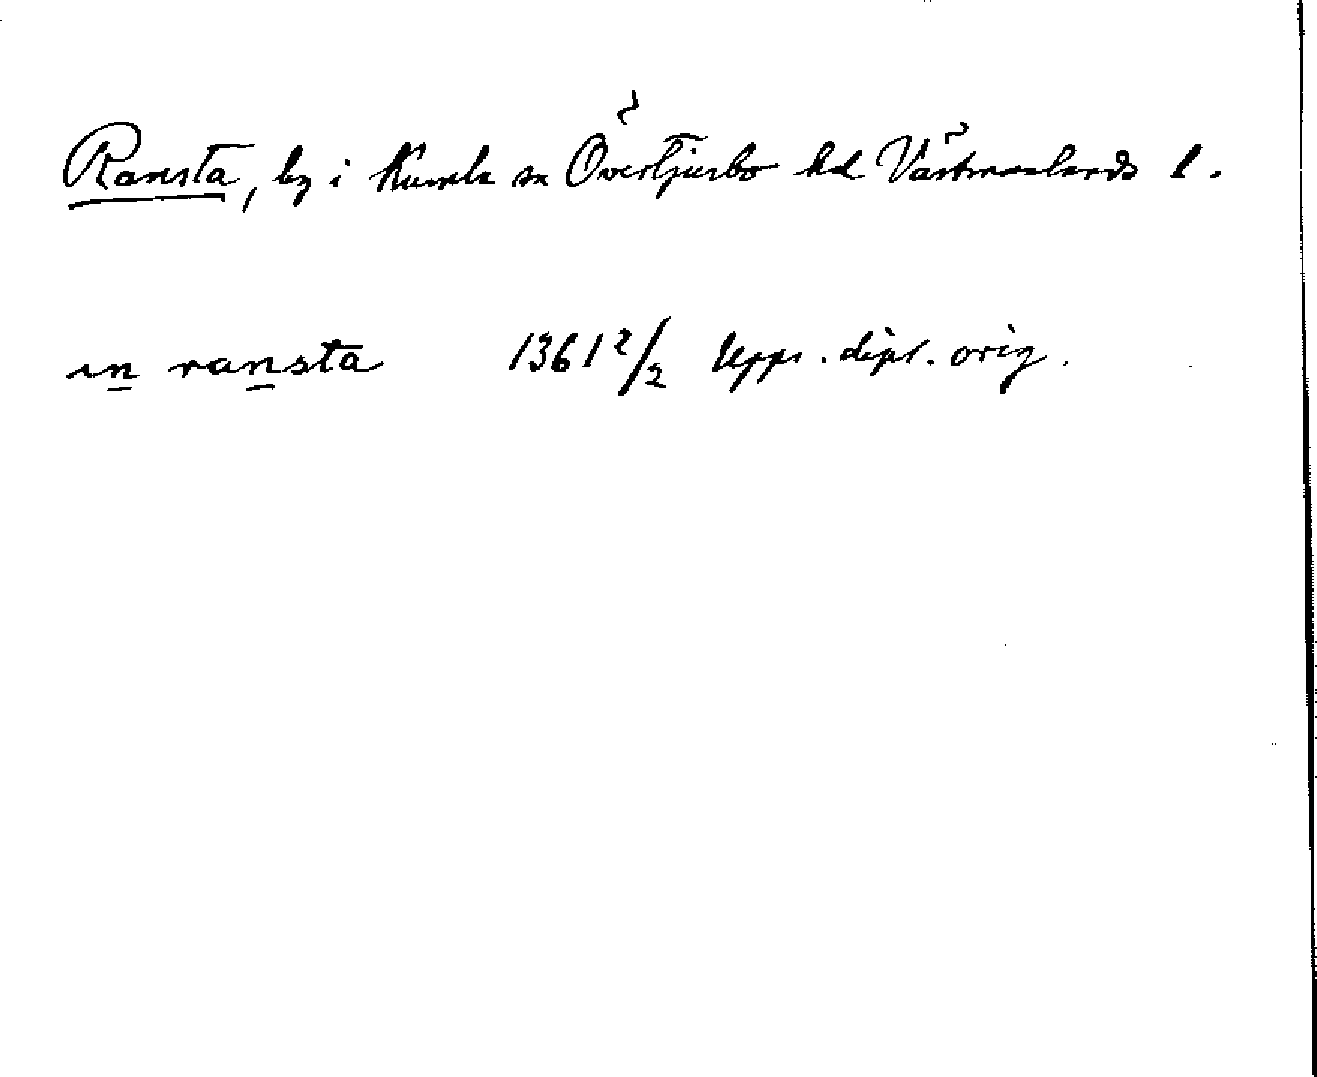 Ransta, by i Kumla sn Övertjurbo hd Västmanlands l.
in ransta 1361 2/2 Upps. dipl. orig.